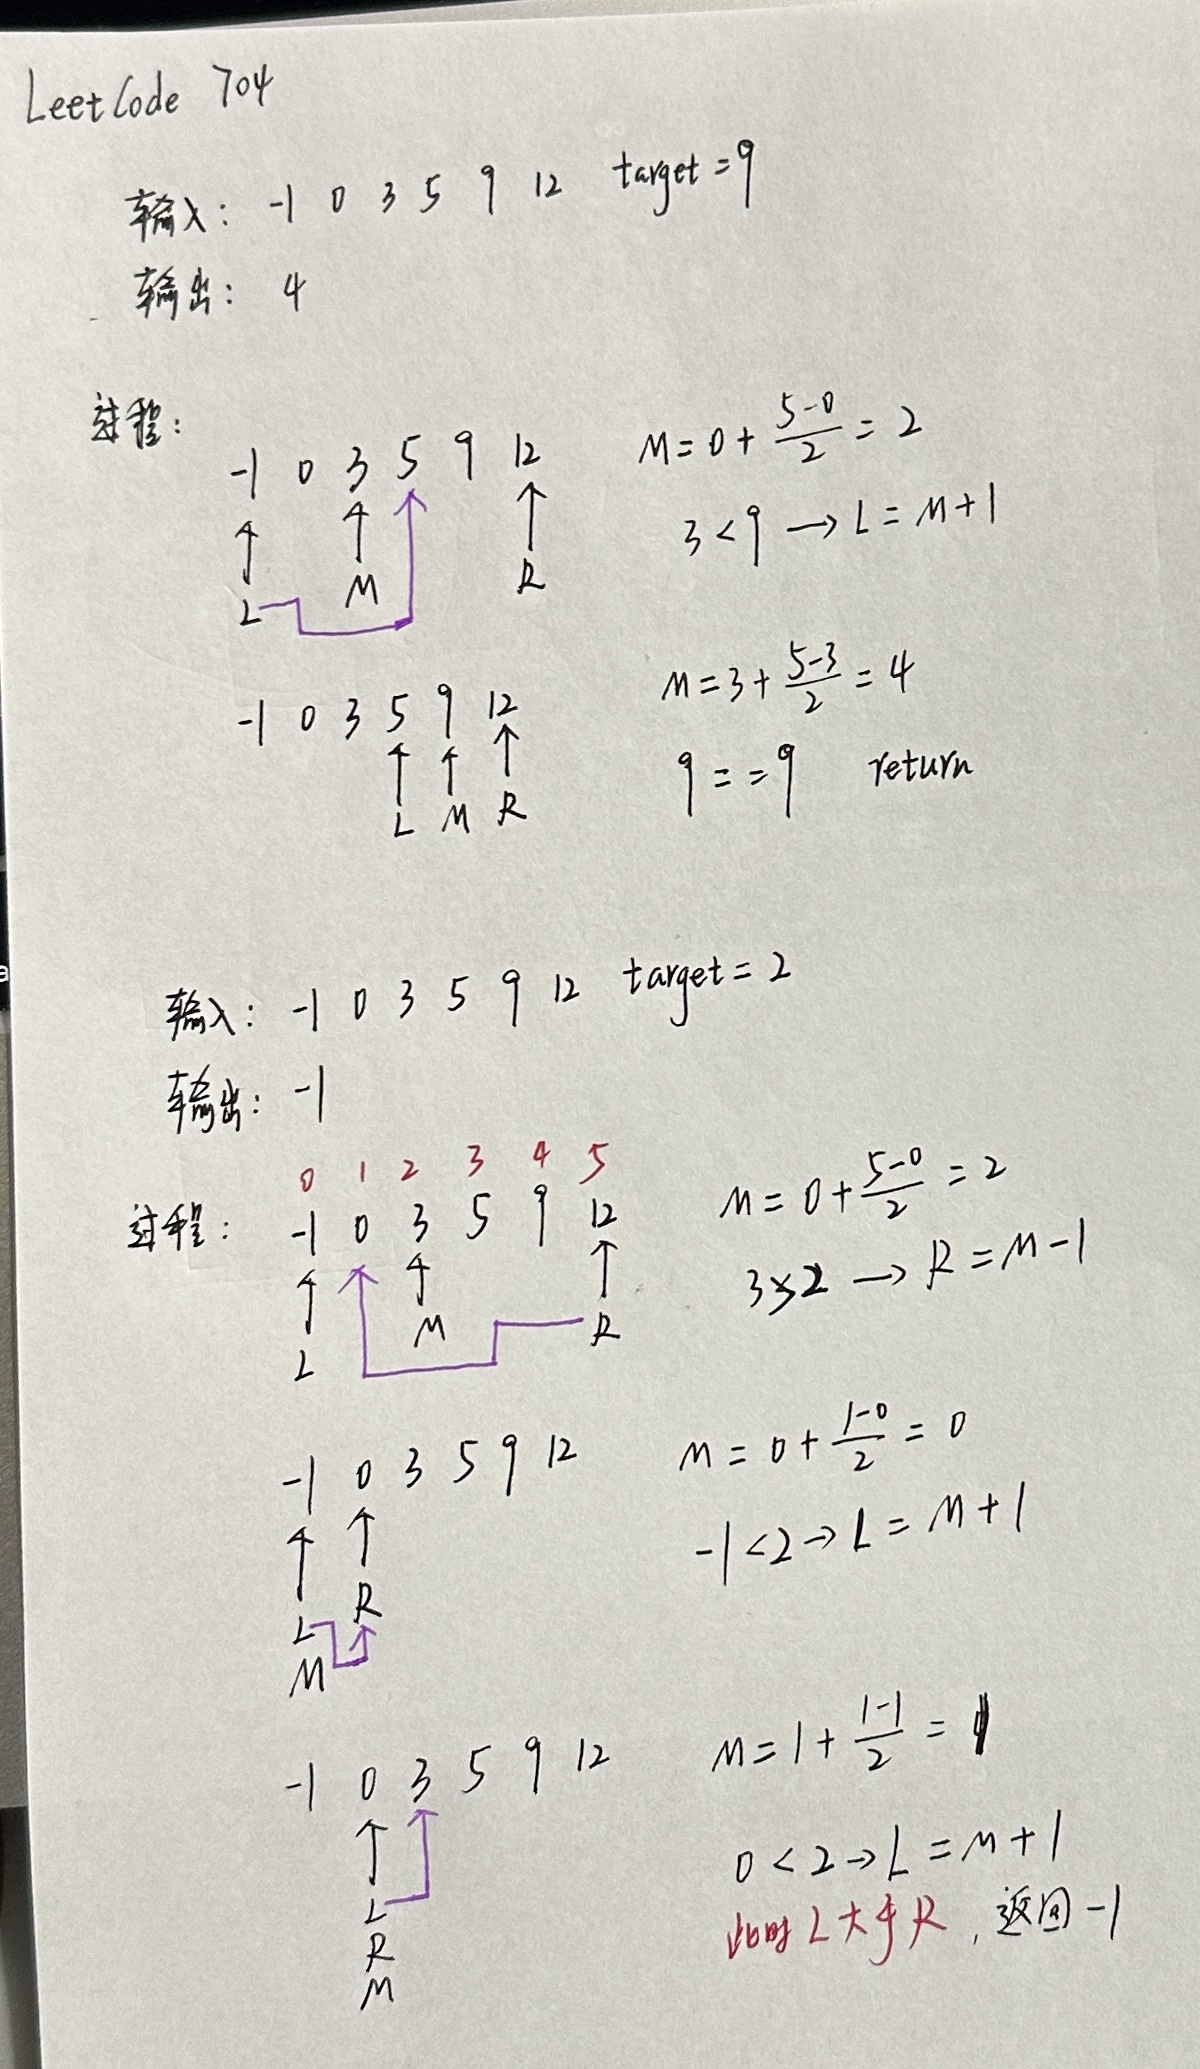 LeetCode 704
输入: -1 0 3 5 9 12 target = 9
输出: 4
过程:
-1 0 3 5 9 12
M = 0 + (5-0)/2 = 2
3 < 9 → L = M + 1
L M R
-1 0 3 5 9 12
M = 3 + (5-3)/2 = 4
9 == 9 return
L M R
输入: -1 0 3 5 9 12 target = 2
输出: -1
0 1 2 3 4 5
过程: -1 0 3 5 9 12
M = 0 + (5-0)/2 = 2
3 > 2 → R = M - 1
L M R
-1 0 3 5 9 12
M = 0 + (1-0)/2 = 0
-1 < 2 → L = M + 1
L R
M
-1 0 3 5 9 12
M = 1 + (1-1)/2 = 1
0 < 2 → L = M + 1
L
R
M
此时 L 大于 R, 返回 -1